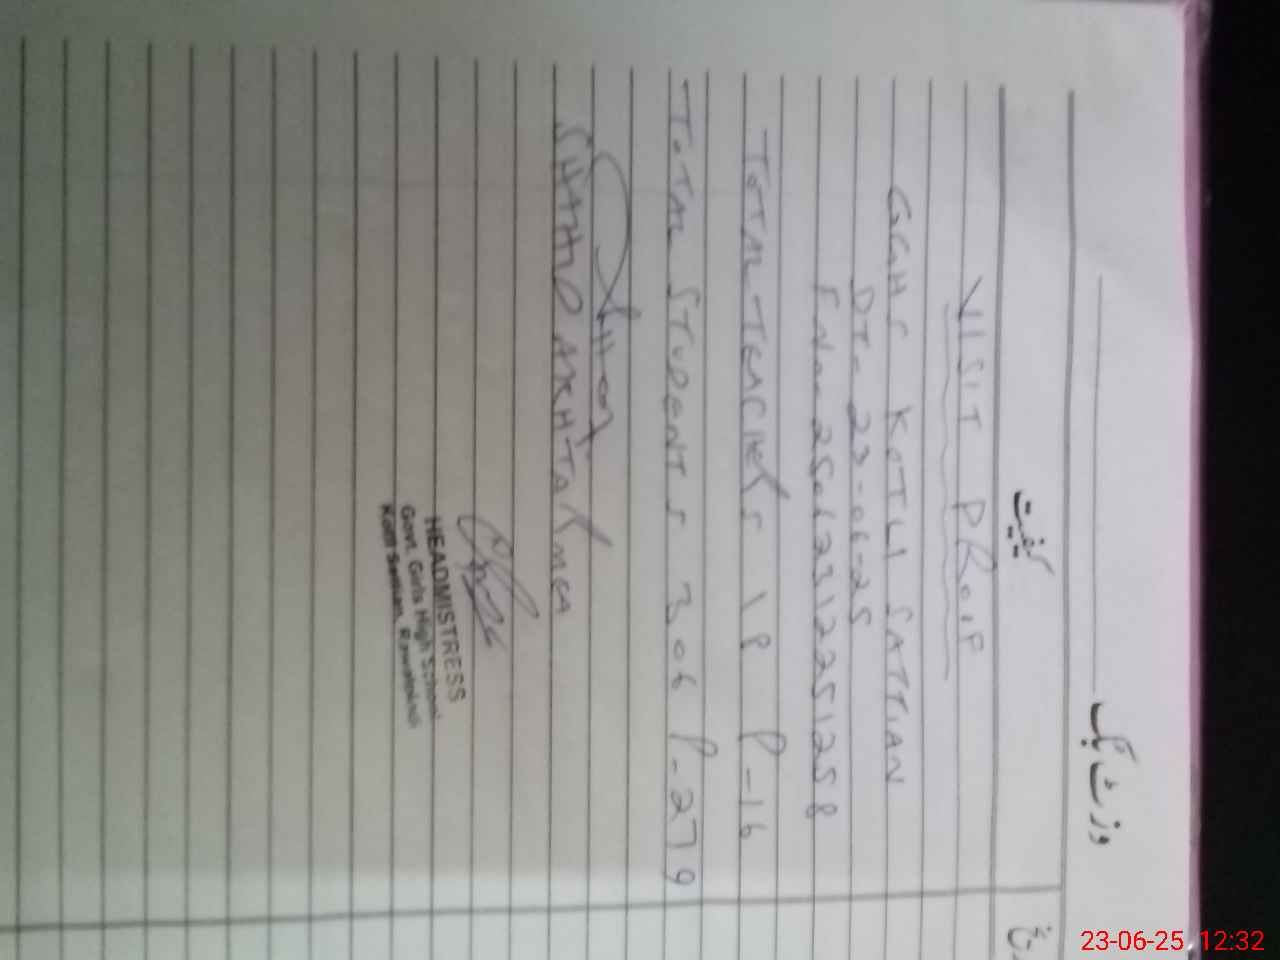 وزٹ بک
کیفیت
VISIT PROIF
GGHS KOTLI SATTIAN
DT- 23-06-25
F.No- 250623122251258
TOTAL TEACHERS 18 P-16
TOTAL STUDENTS 306 P-279
SHAHID AKHTAR MEA
HEADMISTRESS
Govt. Girls High School
Kotli Sattian, Rawalpindi
23-06-25 12:32